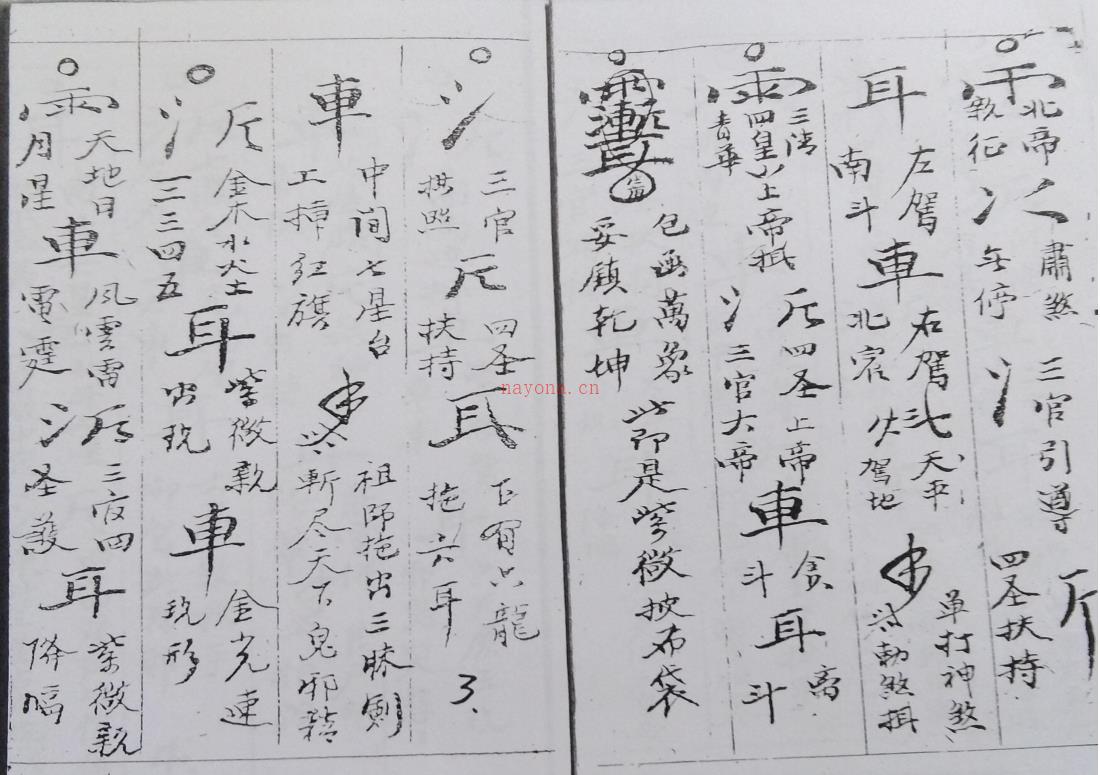 雨 北帝敕征 肅煞無停 氵 三官引導 斤 四圣扶持
耳 左驾南斗 車 右驾北宸 天 驾地 单打神煞
雨 三清四皇上帝 青華 氵斤 四圣上帝 三官大帝 車 貪斗 耳 斗
包函萬象 妥鎮乾坤 此印是紫微披布袋
氵 三官拱照 斤 四圣扶持 耳 下有六龍拖六耳 3.
車 中间七星台 上插红旗 祖師拖出三昧劍 斬尽天下鬼邪精
氵斤 金木水火土 一二三四五 耳 紫微親出现 車 金光速现形
雨 天地日月星 車 風雲雷電霆 氵斤 三官四圣護 耳 紫微親降福
nayona.cn